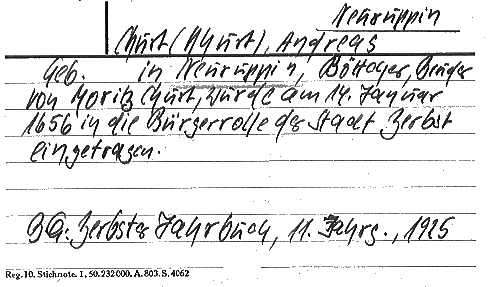 Neuruppin
Churt (Khurt), Andreas
Geb. in Neuruppin, Böttcher, Bruder
von Moritz Churt, wurde am 14. Januar
1656 in die Bürgerrolle der Stadt Zerbst
eingetragen.
BQ: Zerbster Jahrbuch, 11. Jahrg., 1925
Reg. 10. Stichnote. 1, 50. 232000. A. 803. S. 4062